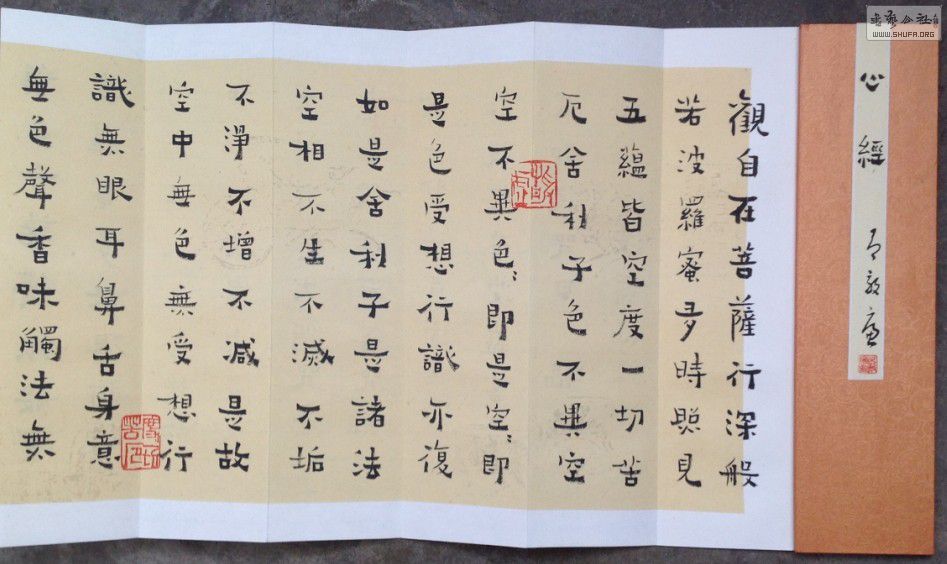 書藝公社
WWW.SHUFA.ORG
心經
觀自在菩薩行深般
若波羅蜜多時照見
五蘊皆空度一切苦
厄舍利子色不異空
空不異色〻即是空〻即
是色受想行識亦復
如是舍利子是諸法
空相不生不滅不垢
不淨不增不減是故
空中無色無受想行
識無眼耳鼻舌身意
無色聲香味觸法無